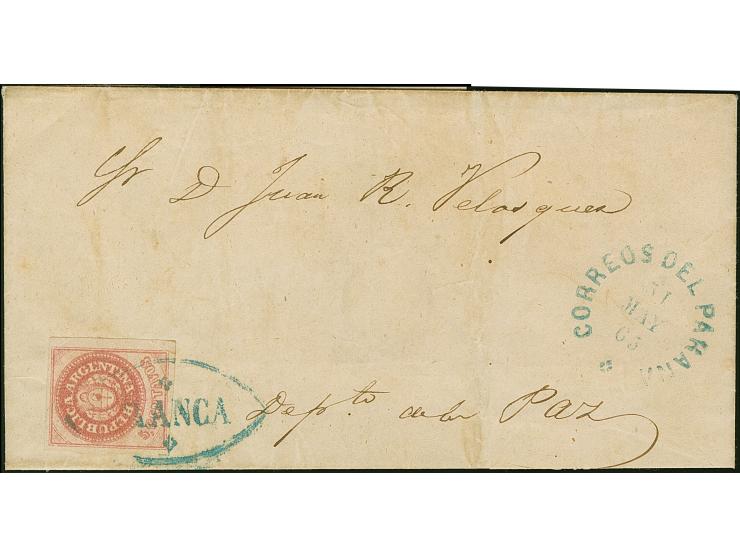 Sr D Juan R. Velasques
CORREOS DEL PARANA
31
MAY
63
REPUBLICA ARGENTINA
FRANCA
Depto. de la Paz